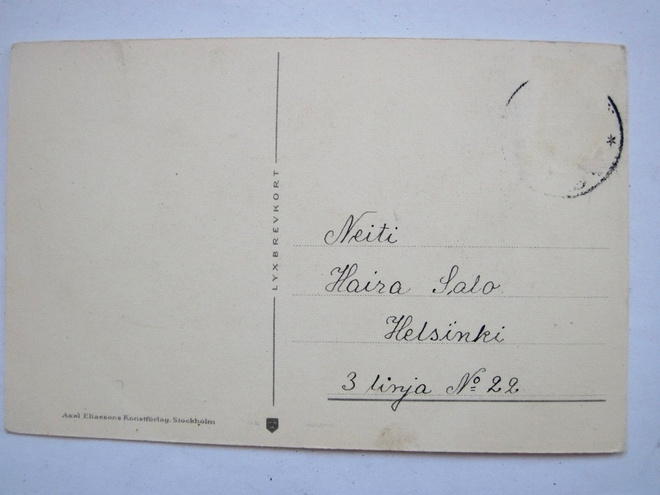 LYXBREVKORT
Neiti
Haira Salo
Helsinki
3 linja No 22
Axel Eliassons Konstförlag, Stockholm